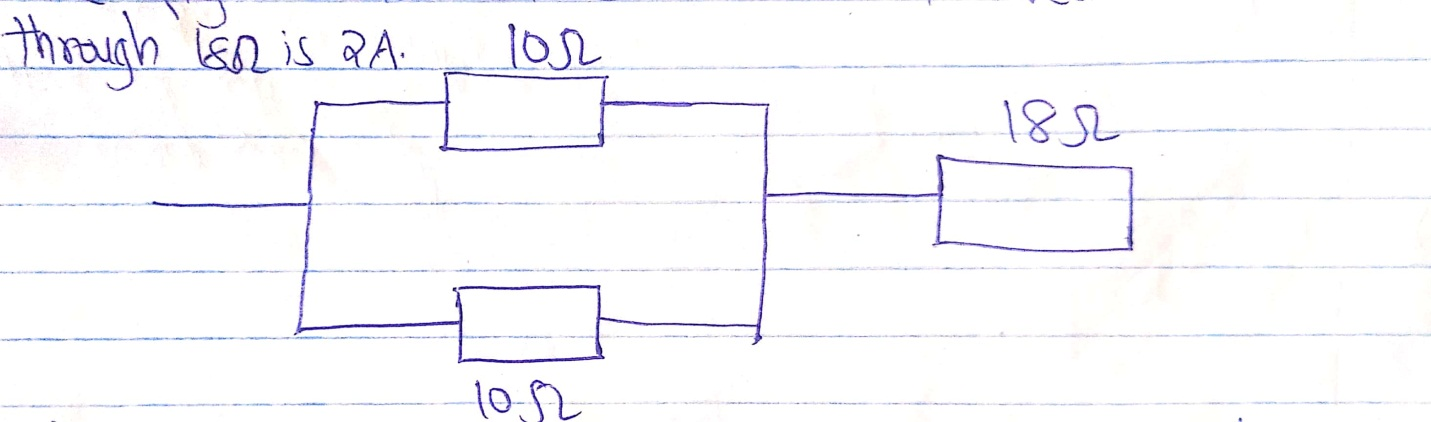 through 18Ω is 2A.
10Ω
18Ω
10Ω